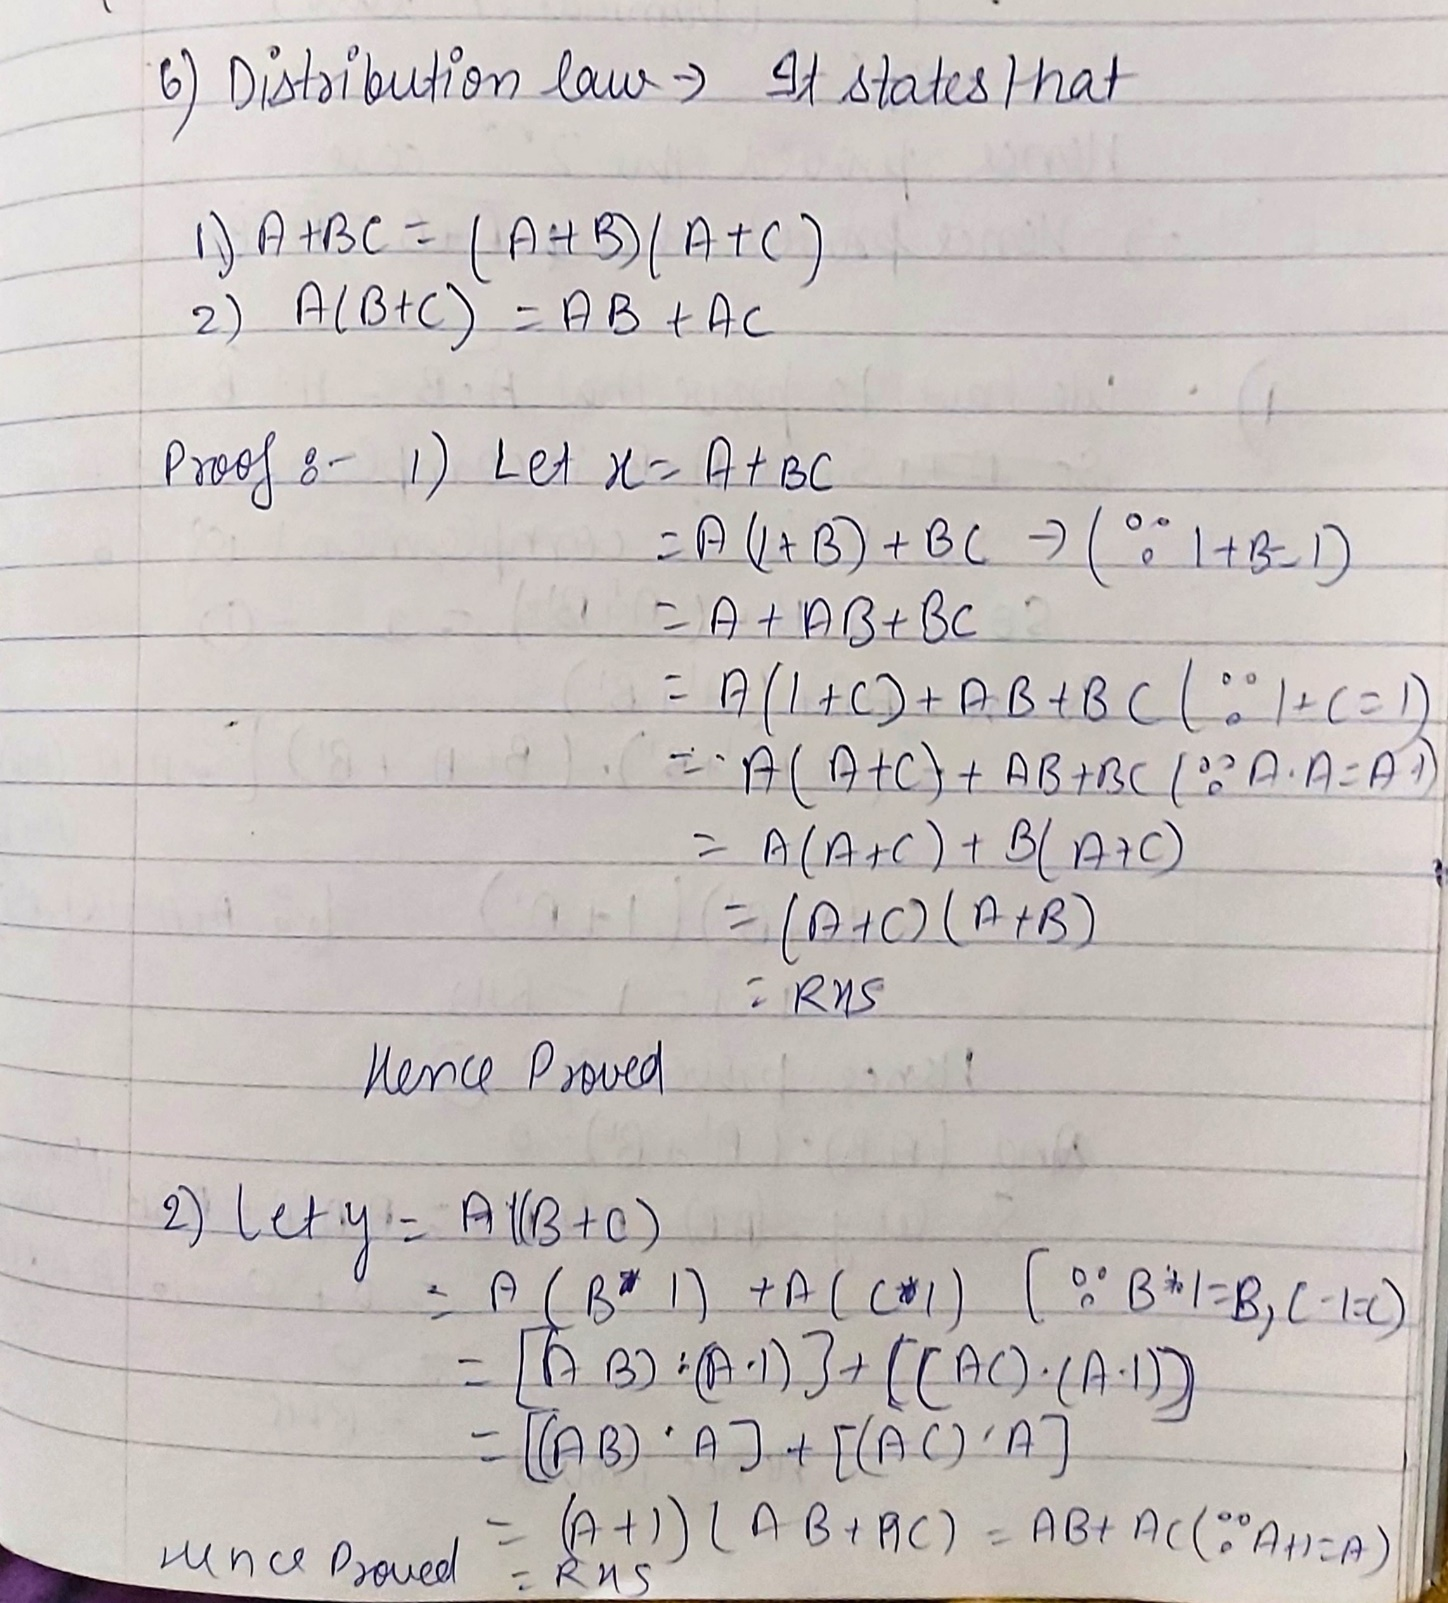 6) Distribution law → It states that
1) A+BC = (A+B)(A+C)
2) A(B+C) = AB + AC
Proof :- 1) Let x = A+BC
= A(1+B) + BC → (∵ 1+B=1)
= A + AB + BC
= A(1+C) + AB + BC (∵ 1+C=1)
= A(A+C) + AB + BC (∵ A·A=A·1)
= A(A+C) + B(A+C)
= (A+C)(A+B)
= RHS
Hence Proved
2) Let y = A(B+C)
= A(B*1) + A(C*1) [∵ B*1=B, C·1=C)
= [(AB)·(A·1)] + [(AC)·(A·1)]
= [(AB)·A] + [(AC)·A]
= (A+1)(AB+AC) = AB+AC (∵ A+1=A)
Hence Proved = RHS